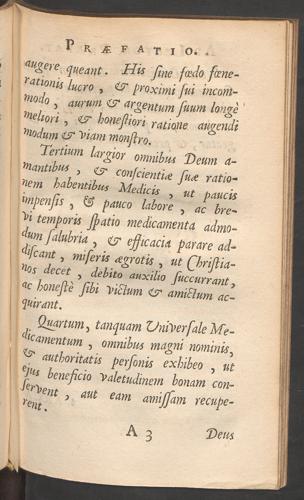 PRÆFATIO.
augere queant. His ſine fœdo fœne-
rationis lucro, & proximi ſui incom-
modo, aurum & argentum ſuum longè
meliori, & honeſtiori ratione augendi
modum & viam monſtro.
Tertium largior omnibus Deum a-
mantibus, & conſcientiæ ſuæ ratio-
nem habentibus Medicis, ut paucis
impenſis, & pauco labore, ac bre-
vi temporis ſpatio medicamenta admo-
dum ſalubria, & efficacia parare ad-
diſcant, miſeris ægrotis, ut Chriſtia-
nos decet, debito auxilio ſuccurrant,
ac honeſtè ſibi victum & amictum ac-
quirant.
Quartum, tanquam Univerſale Me-
dicamentum, omnibus magni nominis,
& authoritatis perſonis exhibeo, ut
ejus beneficio valetudinem bonam con-
ſervent, aut eam amiſſam recupe-
rent.
A 3 Deus